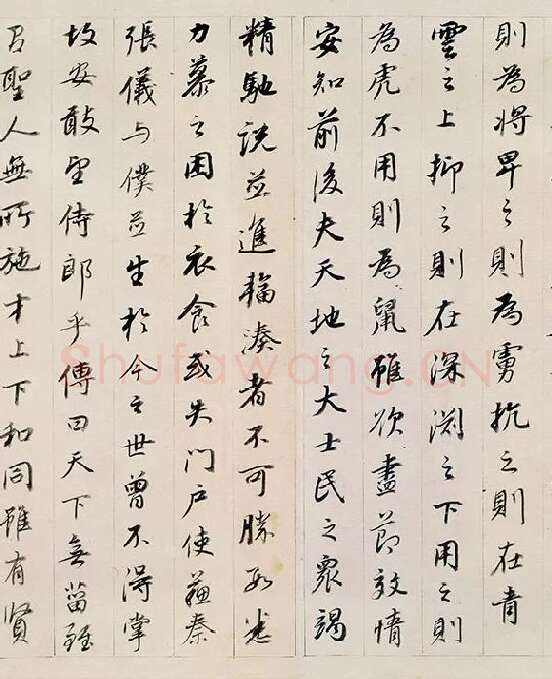 則為將卑之則為虜抗之則在青
雲之上抑之則在深渊之下用之則
為虎不用則為鼠雖欲盡節效情
安知前後夫天地之大士民之眾竭
精馳說並進輻湊者不可勝數悉
力慕之困於衣食或失門戶使蘇秦
張儀与僕並生於今之世曾不得掌
故安敢望侍郎乎傳曰天下無菑雖
聖人無所施才上下和同雖有賢
Shufawang.CN